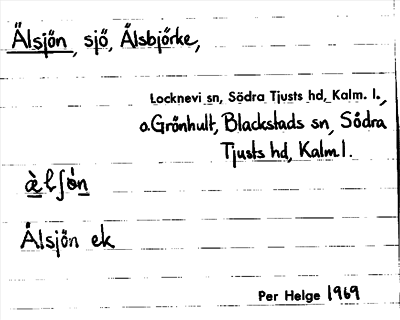 Älsjön, sjö, Älsbjörke,
Locknevi sn, Södra Tjusts hd, Kalm. l.,
o. Grönhult, Blackstads sn, Södra
Tjusts hd, Kalm l.
æ̀lʃón
Älsjön ek
Per Helge 1969